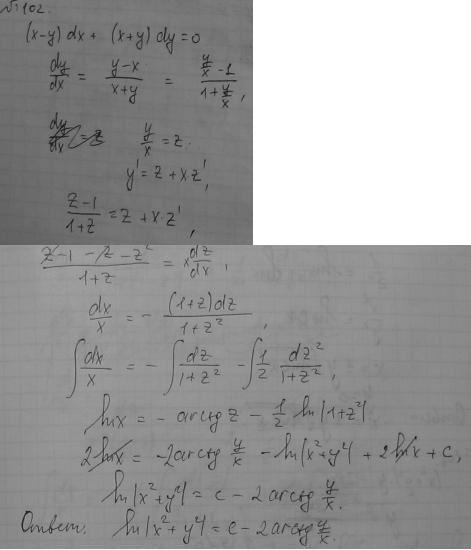 №102.
(x-y)dx + (x+y)dy=0
dy/dx = (y-x)/(x+y) = (y/x - 1)/(1+y/x),
y/x = z.
y' = z + x·z',
(z-1)/(1+z) = z + x·z',
(z-1-z-z²)/(1+z) = x dz/dx,
dx/x = - (1+z)dz/(1+z²),
∫dx/x = -∫dz/(1+z²) - ∫1/2 dz²/(1+z²),
lnx = - arctg z - 1/2 ln|1+z²|
2lnx = -2arctg y/x - ln|x²+y²| + 2lnx + c,
ln|x²+y²| = c - 2arctg y/x.
Ответ: ln|x²+y²| = c - 2arctg y/x.